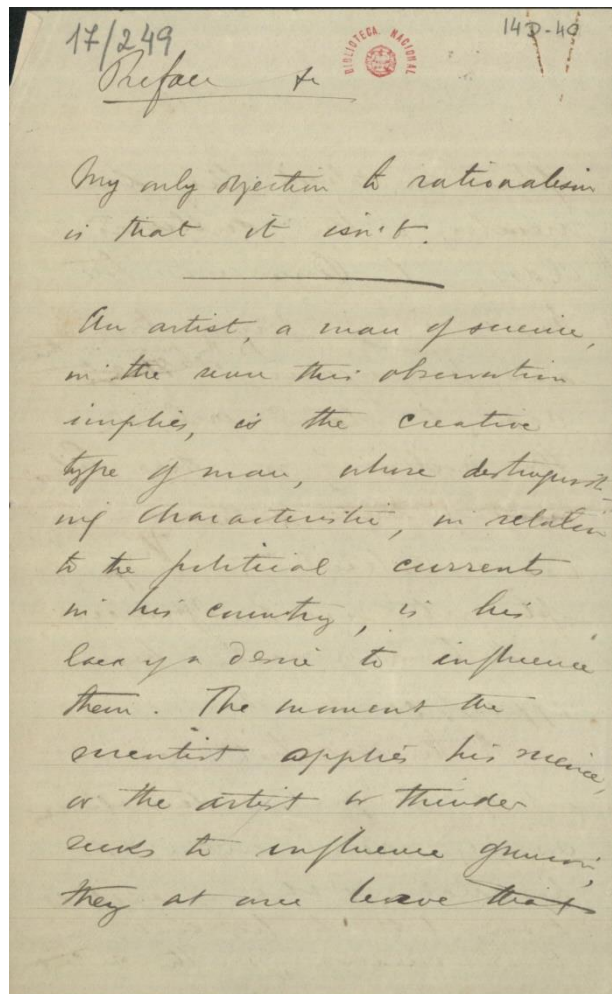 17/249
14D-40
BIBLIOTECA NACIONAL
Preface
My only objection to rationalism
is that it isn't.
An artist, a man of science,
in the sense this observation
implies, is the creative
type of man, whose distinguish-
ing characteristic, in relation
to the political currents
in his country, is his
lack of a desire to influence
them. The moment the
scientist applies his science,
or the artist or thinker
seeks to influence
they at once leave that